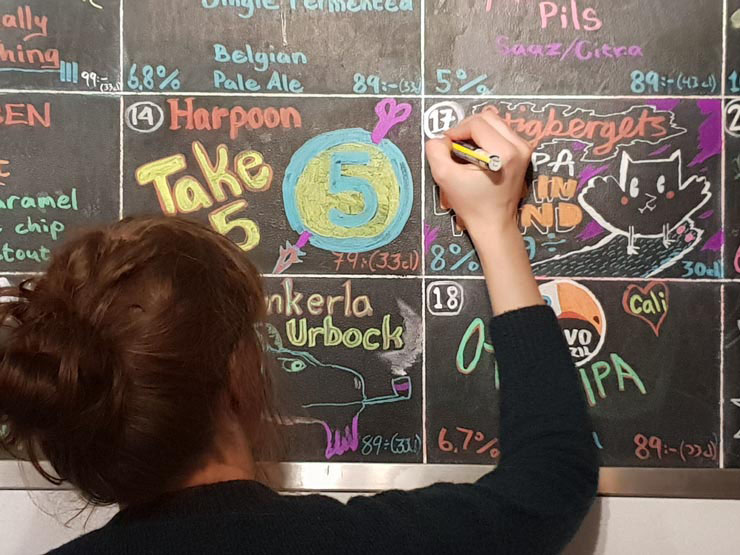 ally
hing
99:-
(33cl)
Single Fermented
Belgian
Pale Ale
6,8%
89:-(33cl)
Pils
Saaz/Citra
5%
89:-(43cl)
EN
aramel
chip
tout
14
Harpoon
Take
5
5
79:(33cl)
17
Stigbergets
PA
IN
ND
8%
30cl
nkerla
Urbock
89:(33cl)
18
Cali
VO
ZIL
IPA
6.7%
89:-(33cl)